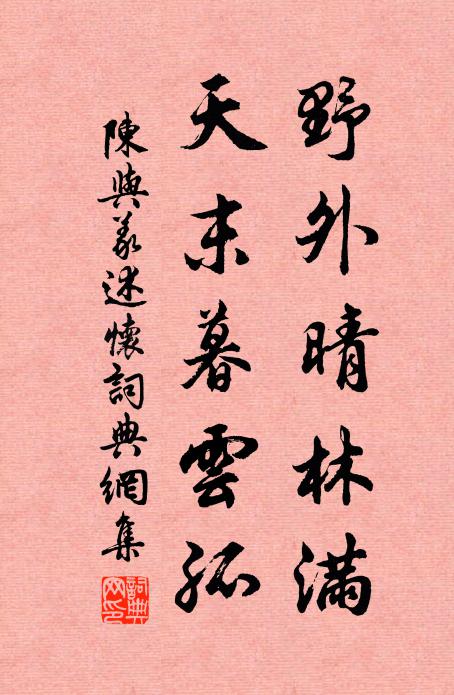 野外晴林满
天末暮雲孤
陳與義述懷詞典網集
詞典網印